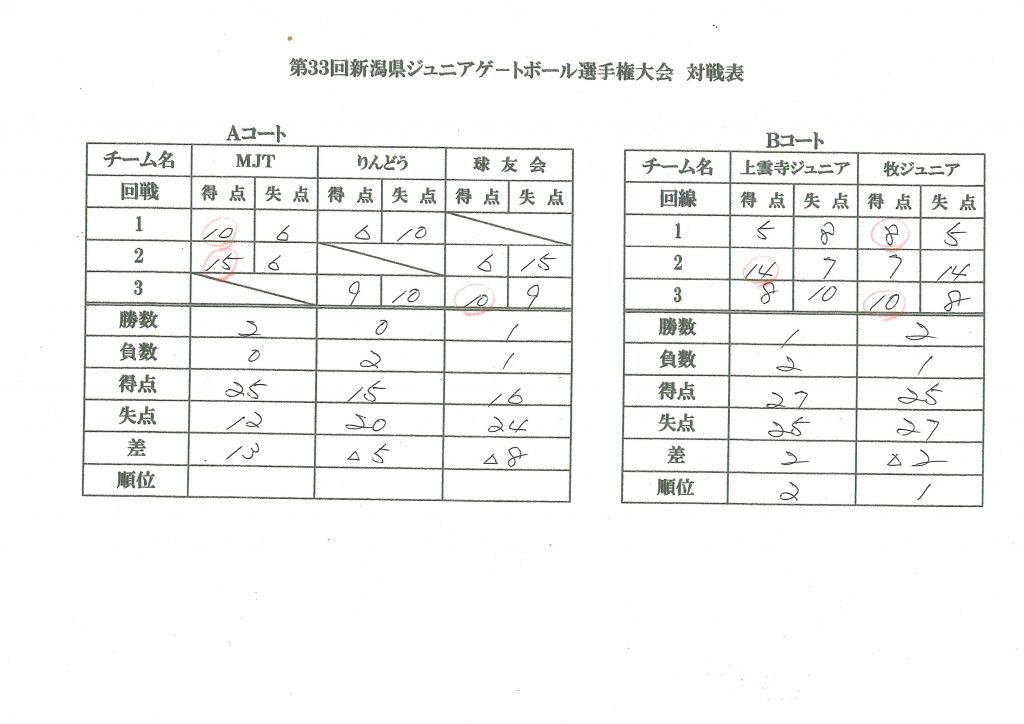 第33回新潟県ジュニアゲートボール選手権大会 対戦表
Aコート
チーム名 MJT りんどう 球友会
回戦 得点 失点 得点 失点 得点 失点
1 10 6 6 10
2 15 6 6 15
3 9 10 10 9
勝数 2 0 1
負数 0 2 1
得点 25 15 16
失点 12 20 24
差 13 △5 △8
順位
Bコート
チーム名 上雲寺ジュニア 牧ジュニア
回線 得点 失点 得点 失点
1 5 8 8 5
2 14 7 7 14
3 8 10 10 8
勝数 1 2
負数 2 1
得点 27 25
失点 25 27
差 2 △2
順位 2 1